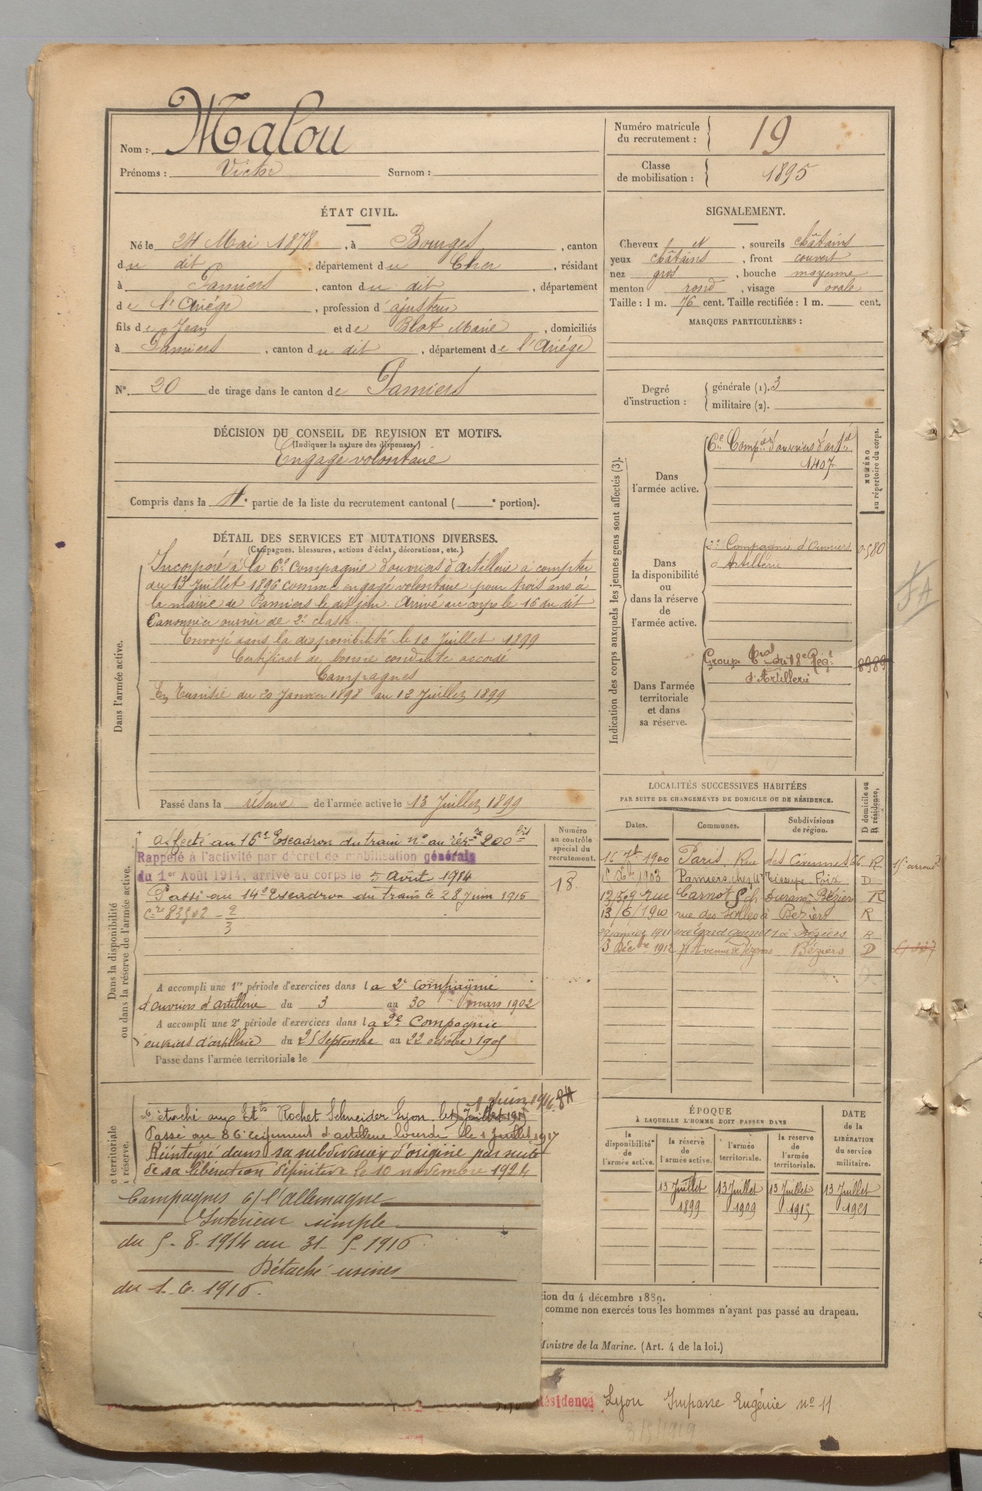 Nom : Malou
Prénoms : Victor Surnom :
Numéro matricule du recrutement : 19
Classe de mobilisation : 1895
ÉTAT CIVIL.
Né le 24 Mai 1878, à Bourges, canton
du dit, département du Cher, résidant
à Pamiers, canton du dit, département
de l'Ariége, profession d'ajusteur
fils de Jean et de Blot Marie, domiciliés
à Pamiers, canton du dit, département de l'Ariége
N° 20 de tirage dans le canton de Pamiers
SIGNALEMENT.
Cheveux et, sourcils châtains
yeux châtains, front couvert
nez gros, bouche moyenne
menton rond, visage ovale
Taille : 1 m. 76 cent. Taille rectifiée : 1 m. cent.
MARQUES PARTICULIÈRES :
Degré d'instruction : générale (1). 3
militaire (2).
DÉCISION DU CONSEIL DE REVISION ET MOTIFS.
(Indiquer la nature des dispenses)
Engagé volontaire
Compris dans la partie de la liste du recrutement cantonal ( portion).
DÉTAIL DES SERVICES ET MUTATIONS DIVERSES.
(Campagnes, blessures, actions d'éclat, décorations, etc.)
Dans l'armée active.
Incorporé à la 6e Compagnie d'ouvriers d'artillerie à compter
du 13 Juillet 1896 comme engagé volontaire pour trois ans à
la mairie de Pamiers le dit jour. Arrivé au corps le 16 du dit
Canonnier ouvrier de 2e classe.
Envoyé dans la disponibilité le 10 Juillet 1899
Certificat de bonne conduite accordé
Campagnes
En Tunisie du 20 Janvier 1898 au 12 Juillet 1899
Passé dans la réserve de l'armée active le 13 Juillet 1899
Indication des corps auxquels les jeunes gens sont affectés (3).
NUMÉRO au répertoire du corps.
Dans l'armée active.
6e Compie d'ouvriers d'artie
1407
Dans la disponibilité ou dans la réserve de l'armée active.
2e Compagnie d'Ouvriers
d'Artillerie
Dans l'armée territoriale et dans sa réserve.
Groupe du 18e Régt
d'Artillerie
8989
Dans la disponibilité ou dans la réserve de l'armée active.
affecté au 16e Escadron du train n° au 200 bis
Rappelé à l'activité par décret de mobilisation générale
du 1er Août 1914, arrivé au corps le 5 Août 1914
Passé au 14e Escadron du train le 28 juin 1916
A accompli une 1re période d'exercices dans la 2e Compagnie
d'ouvriers d'artillerie du 3 au 30 mars 1902
A accompli une 2e période d'exercices dans la 2e Compagnie
ouvriers d'artillerie du 25 Septembre au 22 octobre 1905
Passé dans l'armée territoriale le
Numéro au contrôle spécial du recrutement.
18
LOCALITÉS SUCCESSIVES HABITÉES
PAR SUITE DE CHANGEMENTS DE DOMICILE OU DE RÉSIDENCE.
Dates. Communes. Subdivisions de région. D domicile ou R résidence.
1900 Paris, Rue des R
1903 Pamiers Foix D
rue Carnot Béziers R
13/6/1910 rue des à Béziers R
1911 Béziers R
3 Déc 1912 Avenue de Béziers D
1 juin 1916
détaché aux Ets Rochet Schneider Lyon, le
Passé au 86e régiment d'artillerie lourde le 1 Juillet 1917
Réintégré dans sa subdivision d'origine par suite
de sa libération définitive le 10 novembre 1924
Campagnes c/ l'Allemagne
Intérieur simple
du 5-8-1914 au 31-5-1916.
Détaché usines
du 1.6.1916.
ÉPOQUE
À LAQUELLE L'HOMME DOIT PASSER DANS
la disponibilité de l'armée active. la réserve de l'armée active. l'armée territoriale. la réserve de l'armée territoriale.
DATE de la LIBÉRATION du service militaire.
13 Juillet 1899 13 Juillet 1909 13 Juillet 1915 13 Juillet 1921
tion du 4 décembre 1889.
comme non exercés tous les hommes n'ayant pas passé au drapeau.
Ministre de la Marine. (Art. 4 de la loi.)
Résidence Lyon Impasse Eugénie n° 11